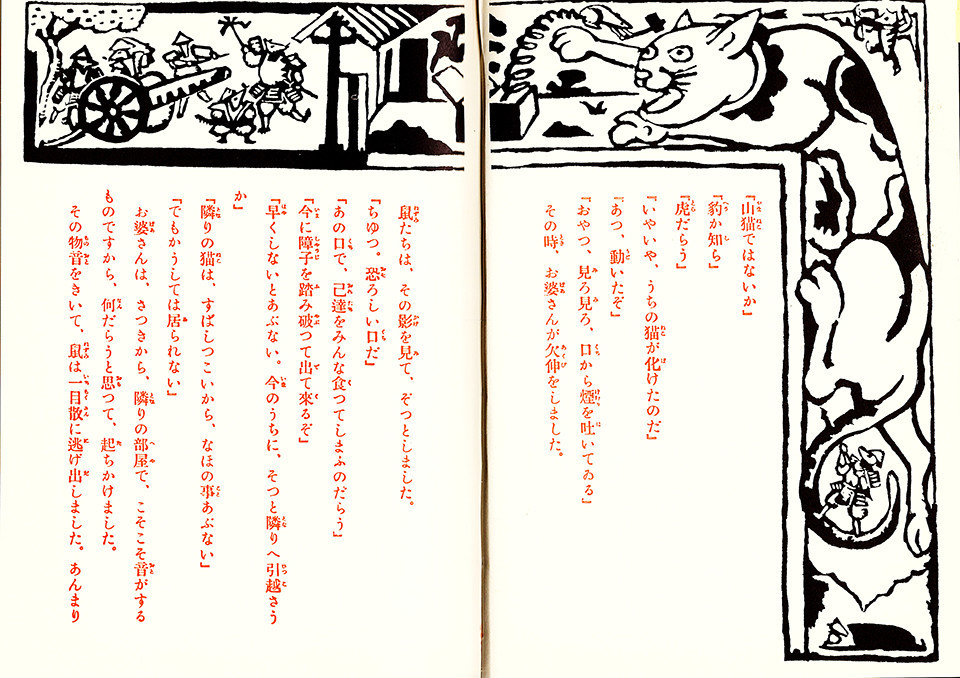 『山猫ではないか』
『豹か知ら』
『虎だらう』
『いやいや、うちの猫が化けたのだ』
『あつ、動いたぞ』
『おやつ、見ろ見ろ、口から煙を吐いてゐる』
その時、お婆さんが欠伸をしました。
鼠たちは、その影を見て、ぞつとしました。
『ちゆつ。恐ろしい口だ』
『あの口で、己達をみんな食つてしまふのだらう』
『今に障子を踏み破つて出て來るぞ』
『早くしないとあぶない。今のうちに、そつと隣りへ引越さう
か』
『隣りの猫は、すばしつこいから、なほの事あぶない』
『でもかうしては居られない』
お婆さんは、さつきから、隣りの部屋で、こそこそ音がする
ものですから、何だらうと思つて、起ちかけました。
その物音をきいて、鼠は一目散に逃げ出しました。あんまり